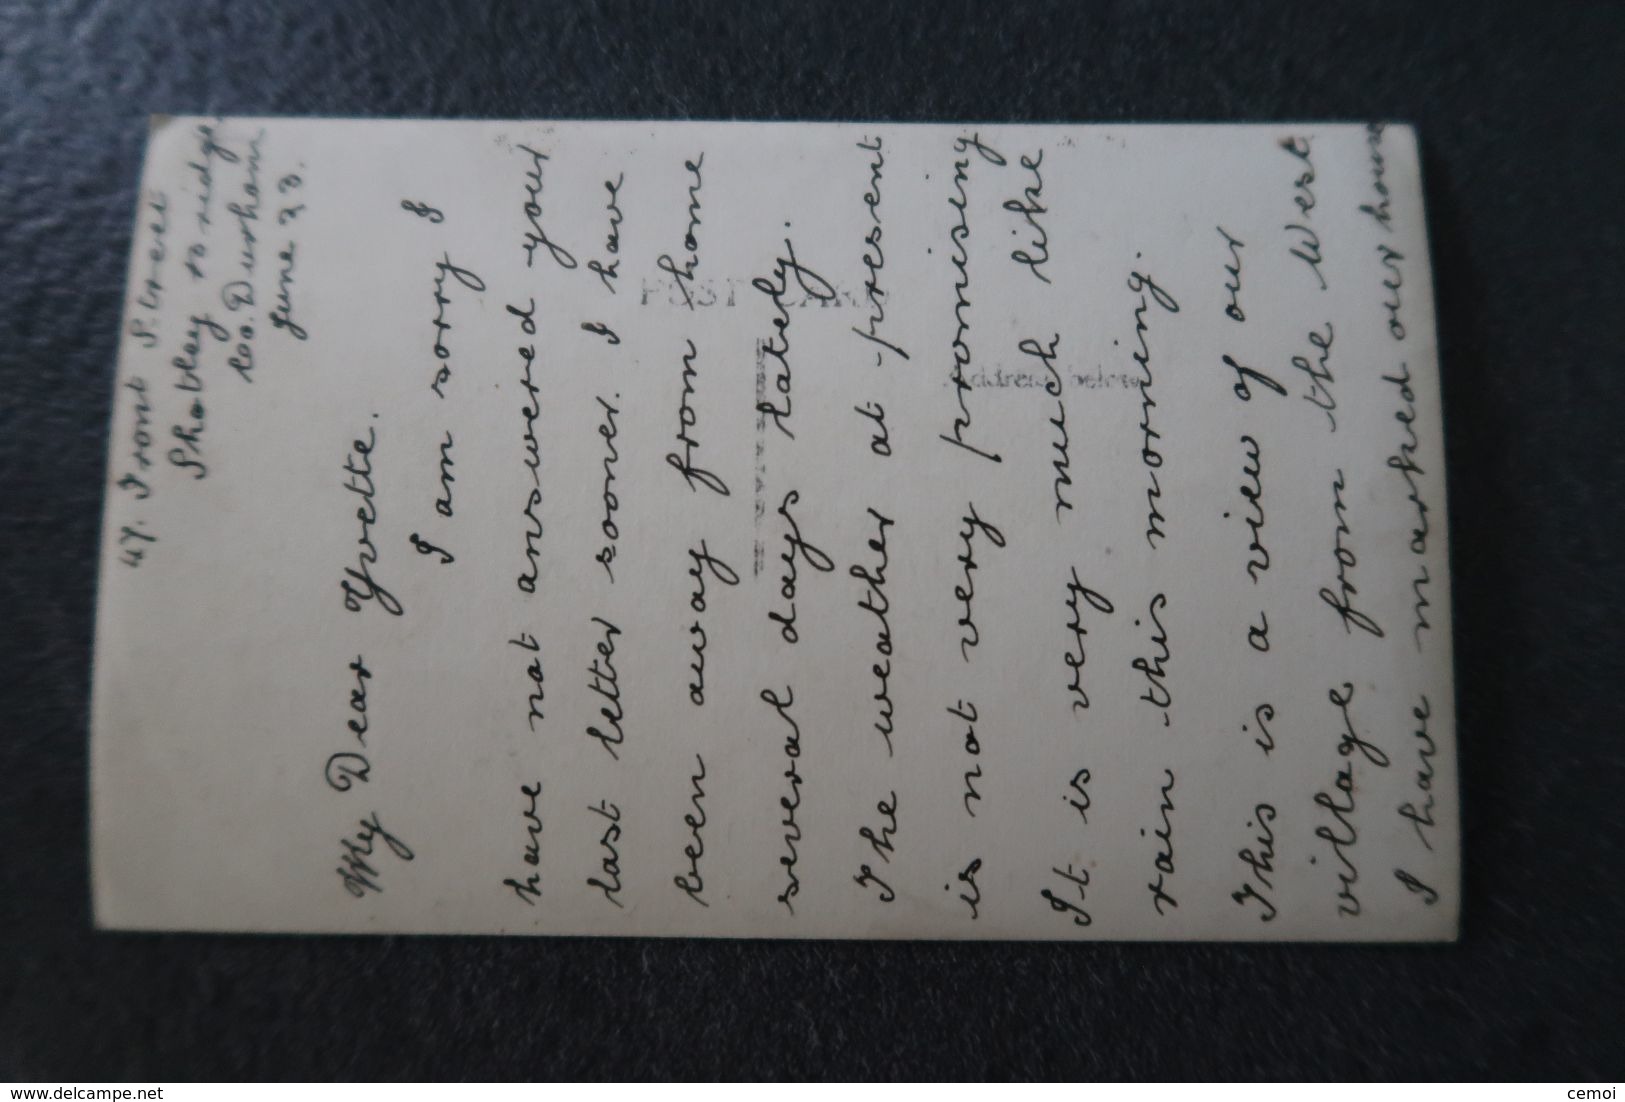 47. Front Street
Shotley Bridge
Co. Durham
June 23.
My Dear Yvette.
I am sorry I
have not answered your
last letter sooner. I have
been away from home
several days lately.
The weather at present
is not very promising
It is very much like
rain this morning.
This is a view of our
village from the West
I have marked our house
POST CARD
Address below
cemoi